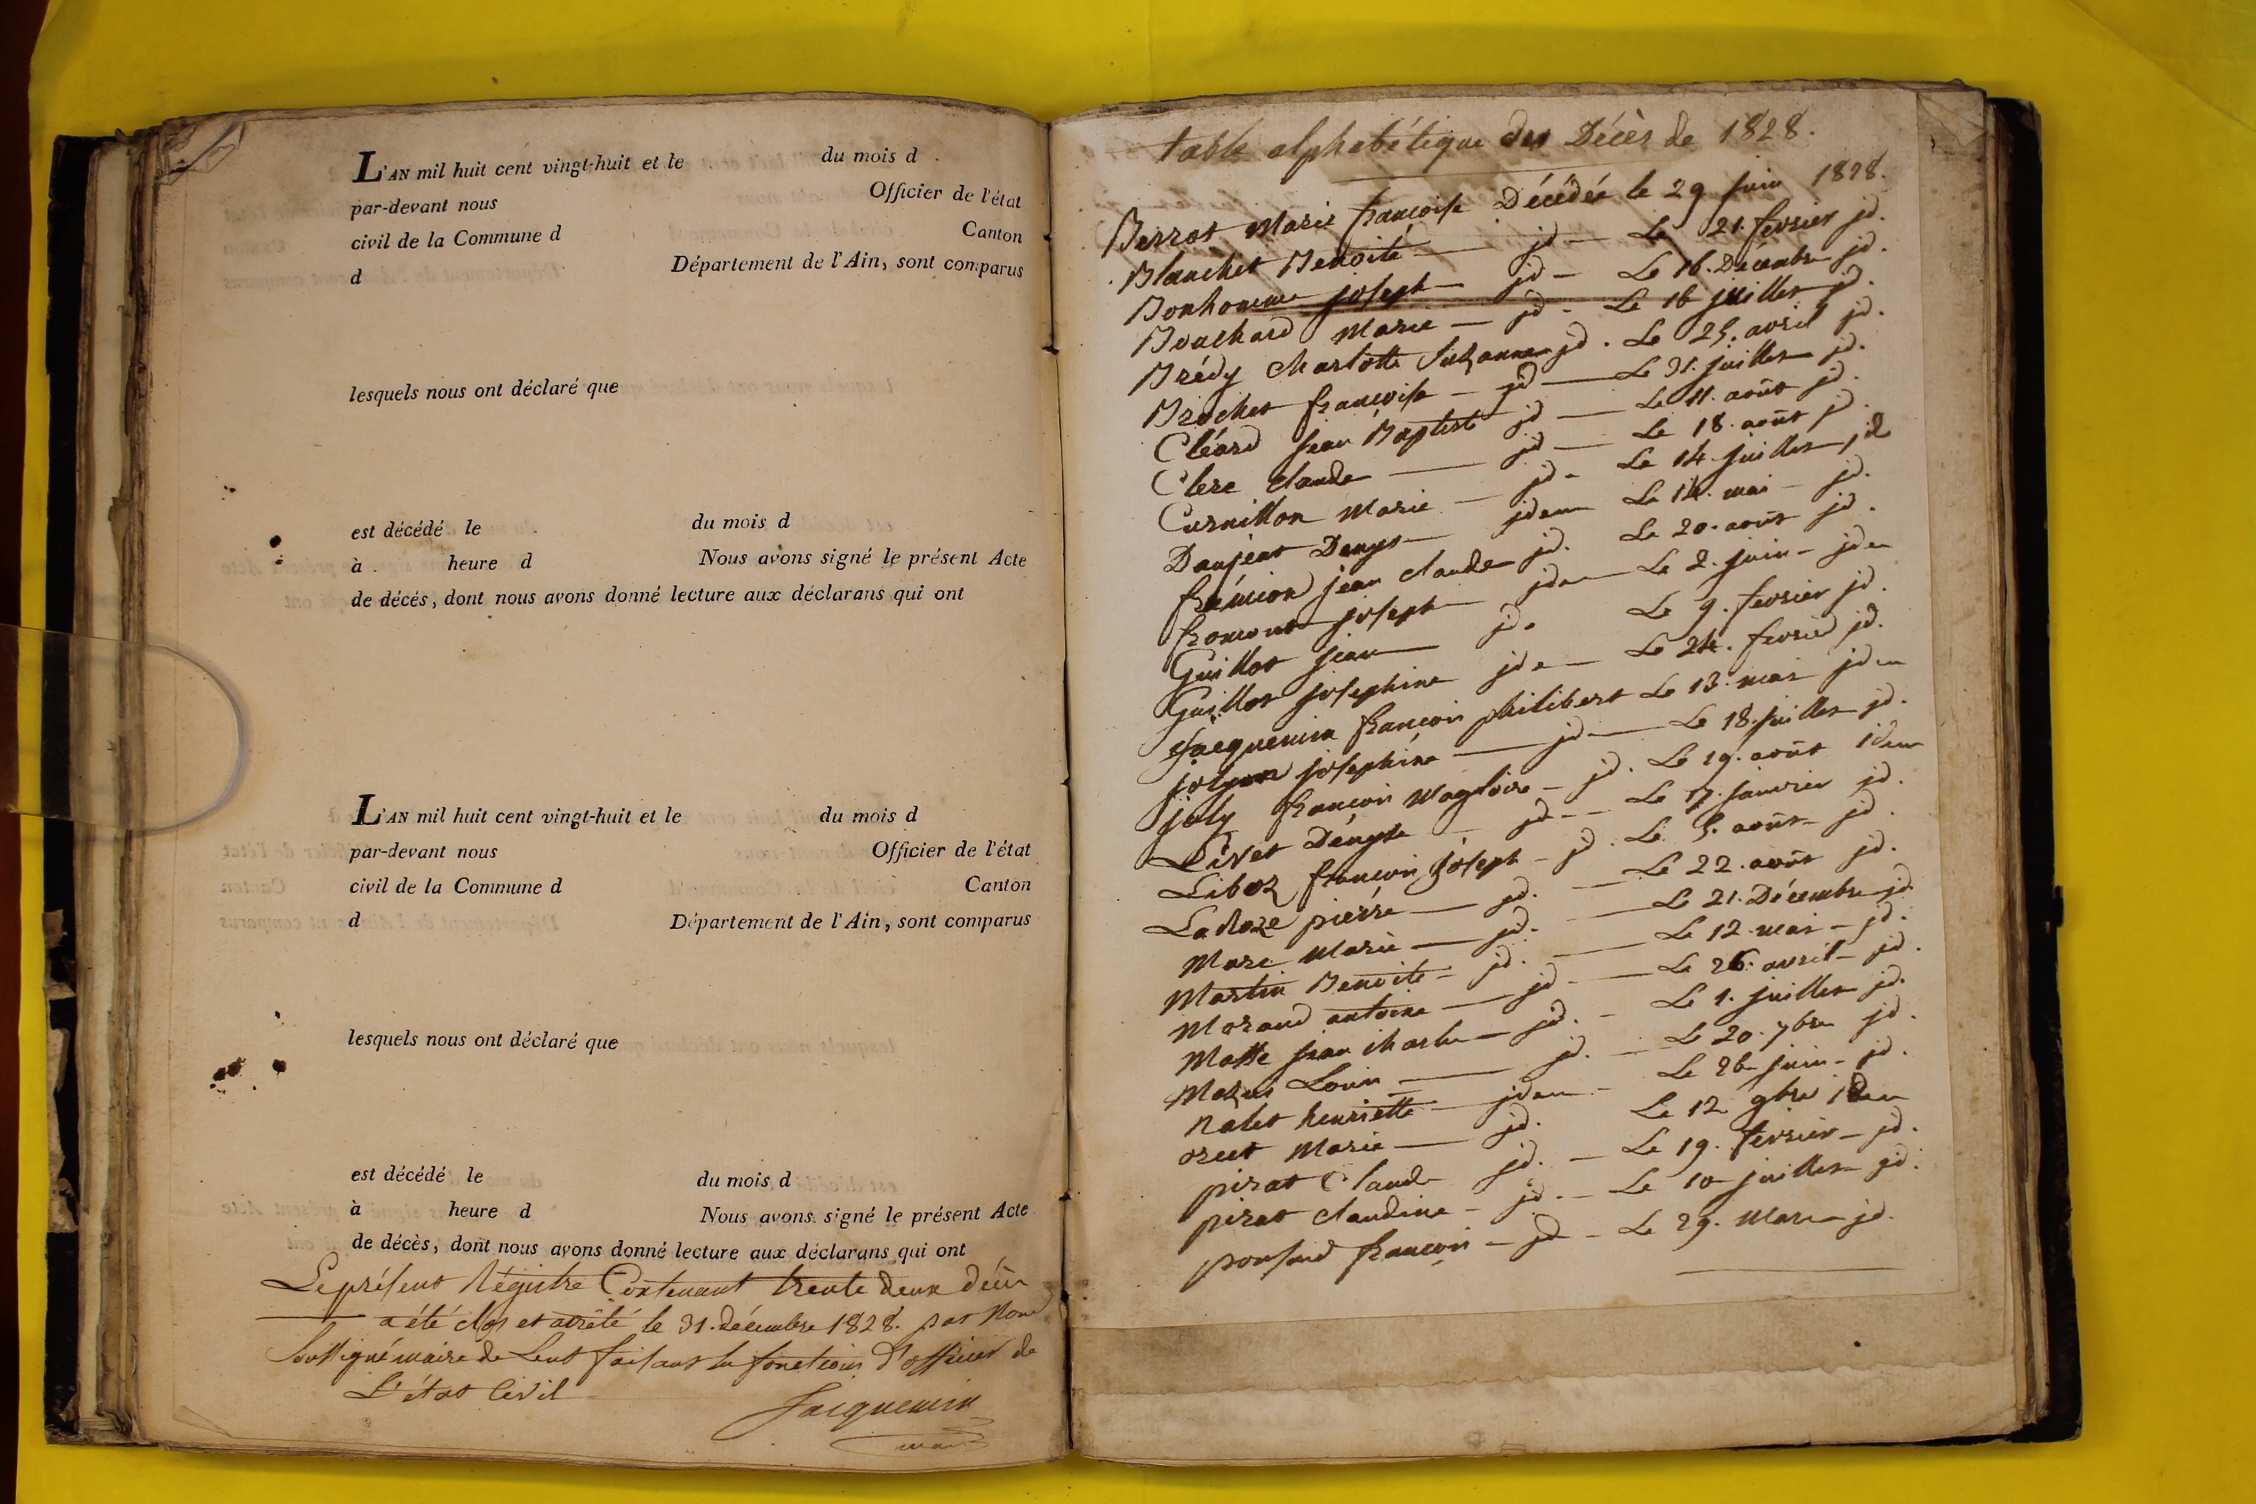 L'AN mil huit cent vingt-huit et le du mois d
par-devant nous Officier de l'état
civil de la Commune d Canton
d Département de l'Ain, sont comparus
lesquels nous ont déclaré que
est décédé le du mois d
à heure d Nous avons signé le présent Acte
de décés, dont nous avons donné lecture aux déclarans qui ont
L'AN mil huit cent vingt-huit et le du mois d
par-devant nous Officier de l'état
civil de la Commune d Canton
d Département de l'Ain, sont comparus
lesquels nous ont déclaré que
est décédé le du mois d
à heure d Nous avons signé le présent Acte
de décès, dont nous avons donné lecture aux déclarans qui ont
Le présent Régistre Contenant trente deux décès
a été clos et arrêté le 31. décembre 1828. par Nous
Soussigné maire de Lent faisant les fonctions d'officier de
L'état Civil
Jacquemin
maire
table alphabétique des Décès de 1828.
Berrot Marie françoise Décédée le 29 juin 1828.
Blanchet Benoite jd Le 21. fevrier jd.
Bonhomme joseph jd Le 16. Décembre jd.
Bouchard Marie jd Le 16 juillet jd.
Brédy Charlotte Suzanne jd. Le 25. avril jd.
Brochet françoise jd Le 31. juillet jd.
Cléard Jean Baptiste jd Le 11. août jd.
Clerc claude jd Le 18. août jd.
Curnillon Marie jd. Le 14. juillet jd
Danjeat Denys jdem Le 14. mai jd.
frémion jean claude jd. Le 20. août jd.
fromont joseph jdem Le 2. juin jdem
Guillot jean jd. Le 9. fevrier jd.
Guillot josephine jd. Le 24. fevrier jd.
Jacquemin françois philibert Le 13. mai jdem
jolyon josephine jd Le 18. juillet jd.
joly françois Magloire jd. Le 19. août idem
Livet Dényse jd. Le 17. janvier jd.
Liboz françois joseph jd. Le 5. août jd.
Ladoze pierre jd. Le 22. août jd.
Marc Marie jd. Le 21. Décembre jd.
Martin Benoite jd. Le 12. mai jd.
Morand antoine jd. Le 26. avril jd.
Masse jean charles jd. Le 1. juillet jd.
Mazuis Louis jd. Le 20. 7bre jd.
Nalet henriette jdem Le 26 juin jd.
orset Marie jd. Le 12 9bre idem
pirat Claude jd. Le 19. fevrier jd.
pirat claudine jd. Le 10 juillet jd.
ponsard françois jd Le 29. Mars jd.